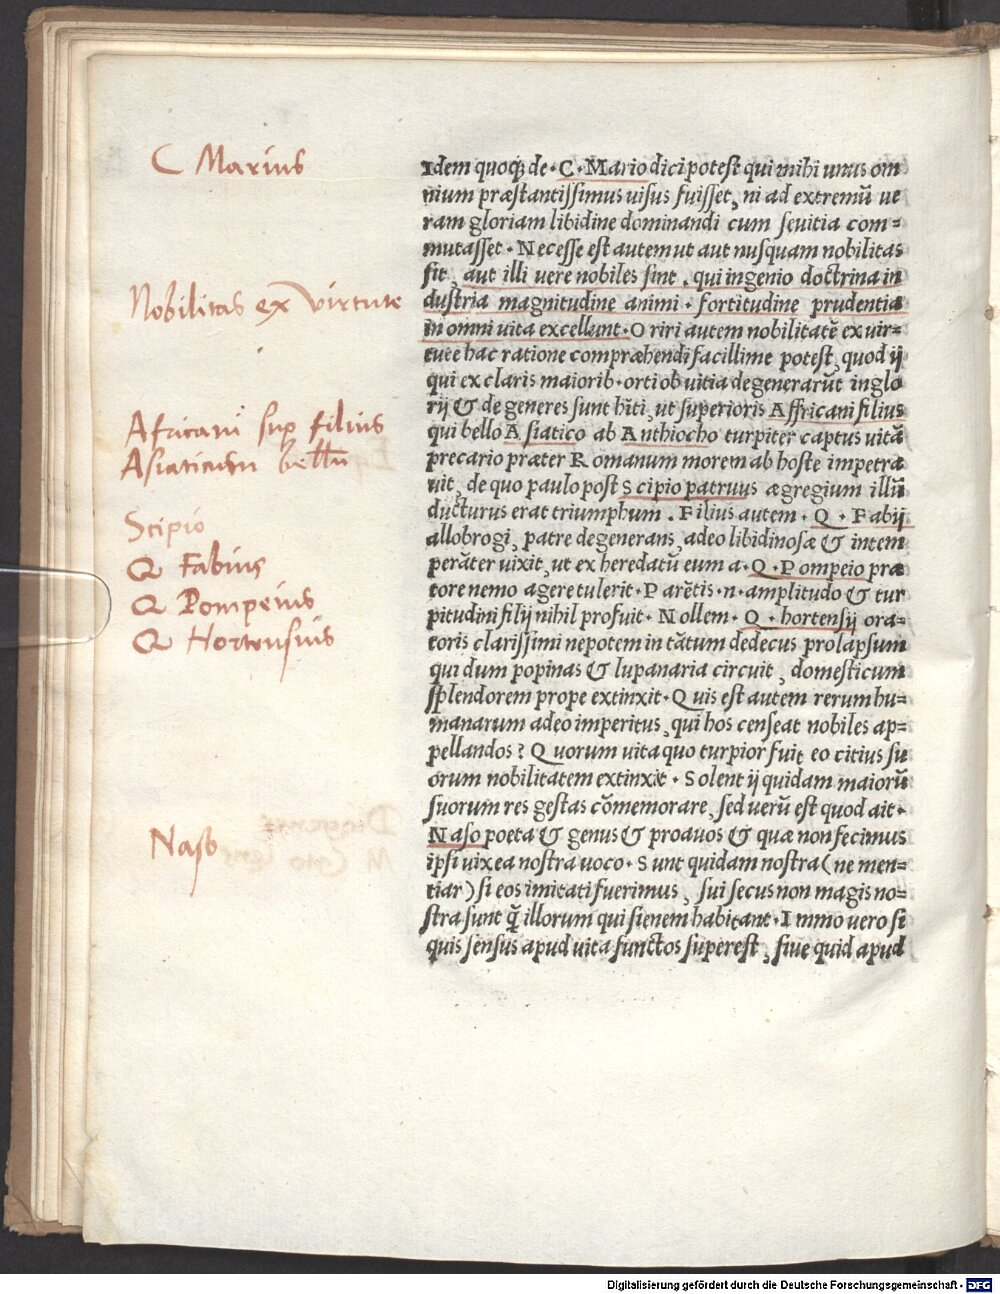 C Marius
Nobilitas ex virtute
Africani sup filius
Asiaticum bellū
Scipio
Q Fabius
Q Pompeius
Q Hortensius
Naso
Idem quoqꝫ de · C · Mario dici potest qui mihi unus om
nium præstantissimus uisus fuisset, ni ad extremū ue
ram gloriam libidine dominandi cum seuitia com=
mutasset · Necesse est autem ut aut nusquam nobilitas
sit, aut illi uere nobiles sint . qui ingenio doctrina in
dustria magnitudine animi · fortitudine prudentia
in omni uita excellunt · Oriri autem nobilitatē ex uir=
tute hac ratione compræhendi facillime potest, quod ij
qui ex claris maiorib · orti ob uitia degenerarūt inglo
rij & degeneres sunt hiti, ut superioris Affricani filius
qui bello Asiatico ab Anthiocho turpiter captus uitā
precario præter Romanum morem ab hoste impetra
uit, de quo paulo post Scipio patruus ægregium illū
ducturus erat triumphum . Filius autem · Q · Fabij
allobrogi, patre degenerans, adeo libidinosæ & intem
perāter uixit, ut ex heredatū eum a · Q · Pompeio præ
tore nemo agere tulerit · Parētis · n · amplitudo & tur
pitudini filij nihil profuit · Nollem · Q · hortensij ora=
toris clarissimi nepotem in tātum dedecus prolapsum
qui dum popinas & lupanaria circuit, domesticum
splendorem prope extinxit · Quis est autem rerum hu=
manarum adeo imperitus, qui hos censeat nobiles ap=
pellandos? Quorum uita quo turpior fuit eo citius su
orum nobilitatem extinxit · Solent ij quidam maiorū
suorum res gestas cōmemorare, sed uerū est quod ait ·
Naso poeta & genus & proauos & quæ non fecimus
ipsi uix ea nostra uoco · Sunt quidam nostra (ne men=
tiar) si eos imitati fuerimus, sui secus non magis no=
stra sunt q̄ illorum qui sienem habitant · Immo uero si
quis sensus apud uita functos superest, siue quid apud
Digitalisierung gefördert durch die Deutsche Forschungsgemeinschaft - DFG